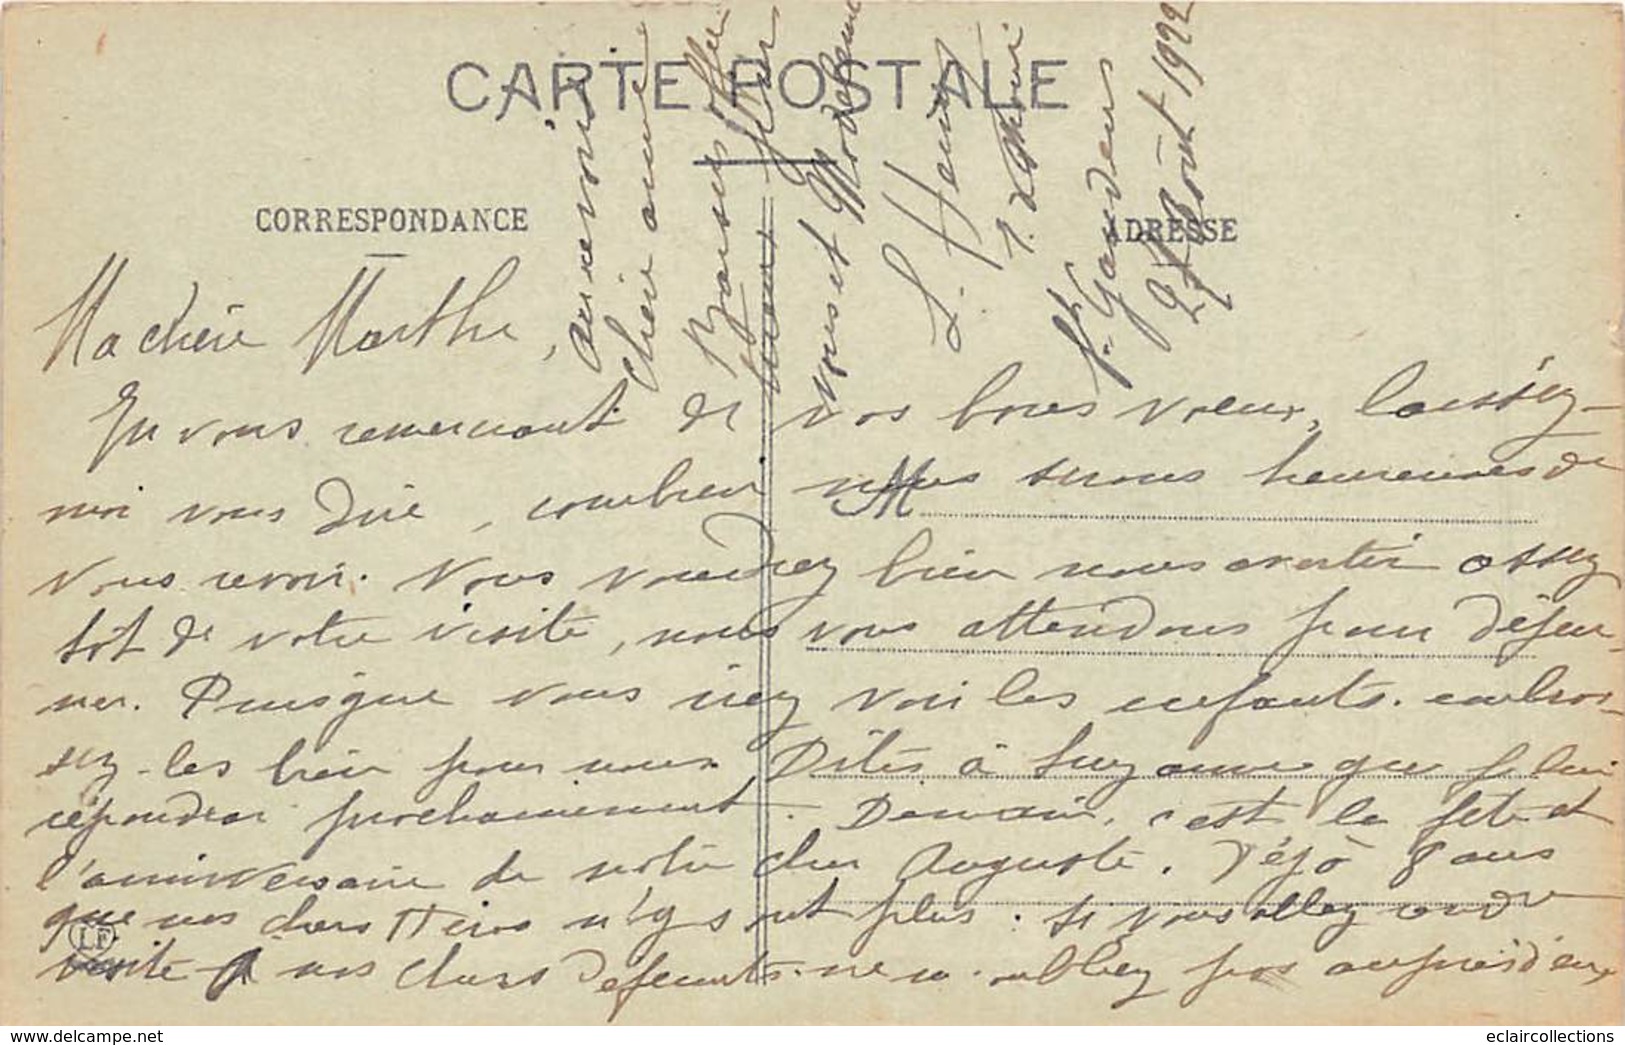 CARTE POSTALE
CORRESPONDANCE
ADRESSE
Ma chère Marthe,
En vous remerciant de vos bons vœux, laissez-
moi vous dire, combien nous serons heureuses de
vous revoir. Vous voudrez bien nous avertir assez
tôt de votre visite, nous vous attendons pour déjeu-
ner. Puisque vous irez voir les enfants. embras-
sez-les bien pour nous. Dites à Suzanne que je lui
répondrai prochainement. Demain, c'est la fête et
l'anniversaire de notre cher Auguste. Déjà 8 ans
que nos chers n'y sont plus. Si vous allez rendre
visite à nos chers défunts. n'allez pas auprès d'eux
au revoir
chère amie
Baisers
vous et Modeste
M
L. Henry
St Gaudens
27 Août 1922
LF
www.delcampe.net
eclaircollections